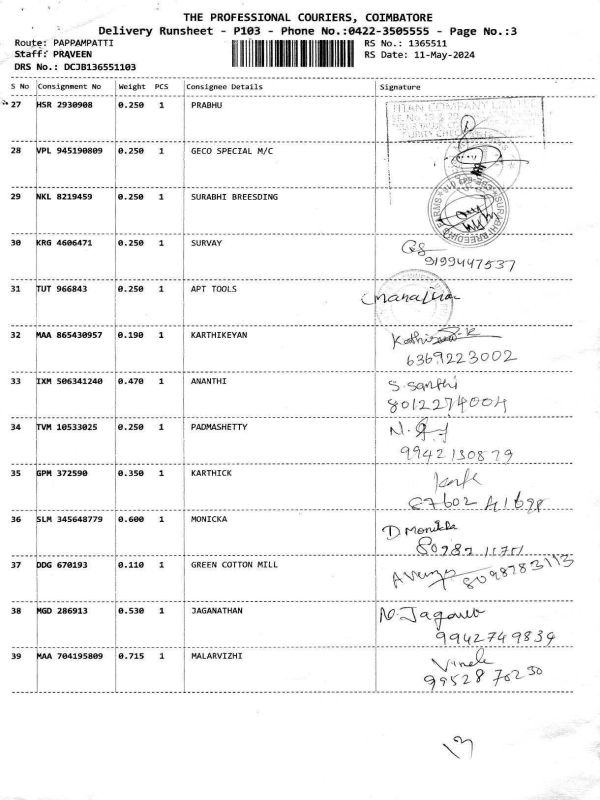 THE PROFESSIONAL COURIERS, COIMBATORE
Delivery Runsheet - P103 - Phone No.:0422-3505555 - Page No.:3
Route: PAPPAMPATTI RS No.: 1365511
Staff: PRAVEEN RS Date: 11-May-2024
DRS No.: DCJB136551103
S No Consignment No Weight PCS Consignee Details Signature
27 HSR 2930908 0.250 1 PRABHU
TITAN COMPANY LIMITED
28 VPL 945190809 0.250 1 GECO SPECIAL M/C
29 NKL 8219459 0.250 1 SURABHI BREESDING
30 KRG 4606471 0.250 1 SURVAY
9199447537
31 TUT 966843 0.250 1 APT TOOLS
32 MAA 865430957 0.190 1 KARTHIKEYAN
6369223002
33 IXM 506341240 0.470 1 ANANTHI S. Santhi
8012274004
34 TVM 10533025 0.250 1 PADMASHETTY
9942130879
35 GPM 372590 0.350 1 KARTHICK
87602 41698
36 SLM 345648779 0.600 1 MONICKA D Monicka
37 DDG 670193 0.110 1 GREEN COTTON MILL
8098783113
38 MGD 286913 0.530 1 JAGANATHAN
9942749834
39 MAA 704195809 0.715 1 MALARVIZHI
99528 70230
13